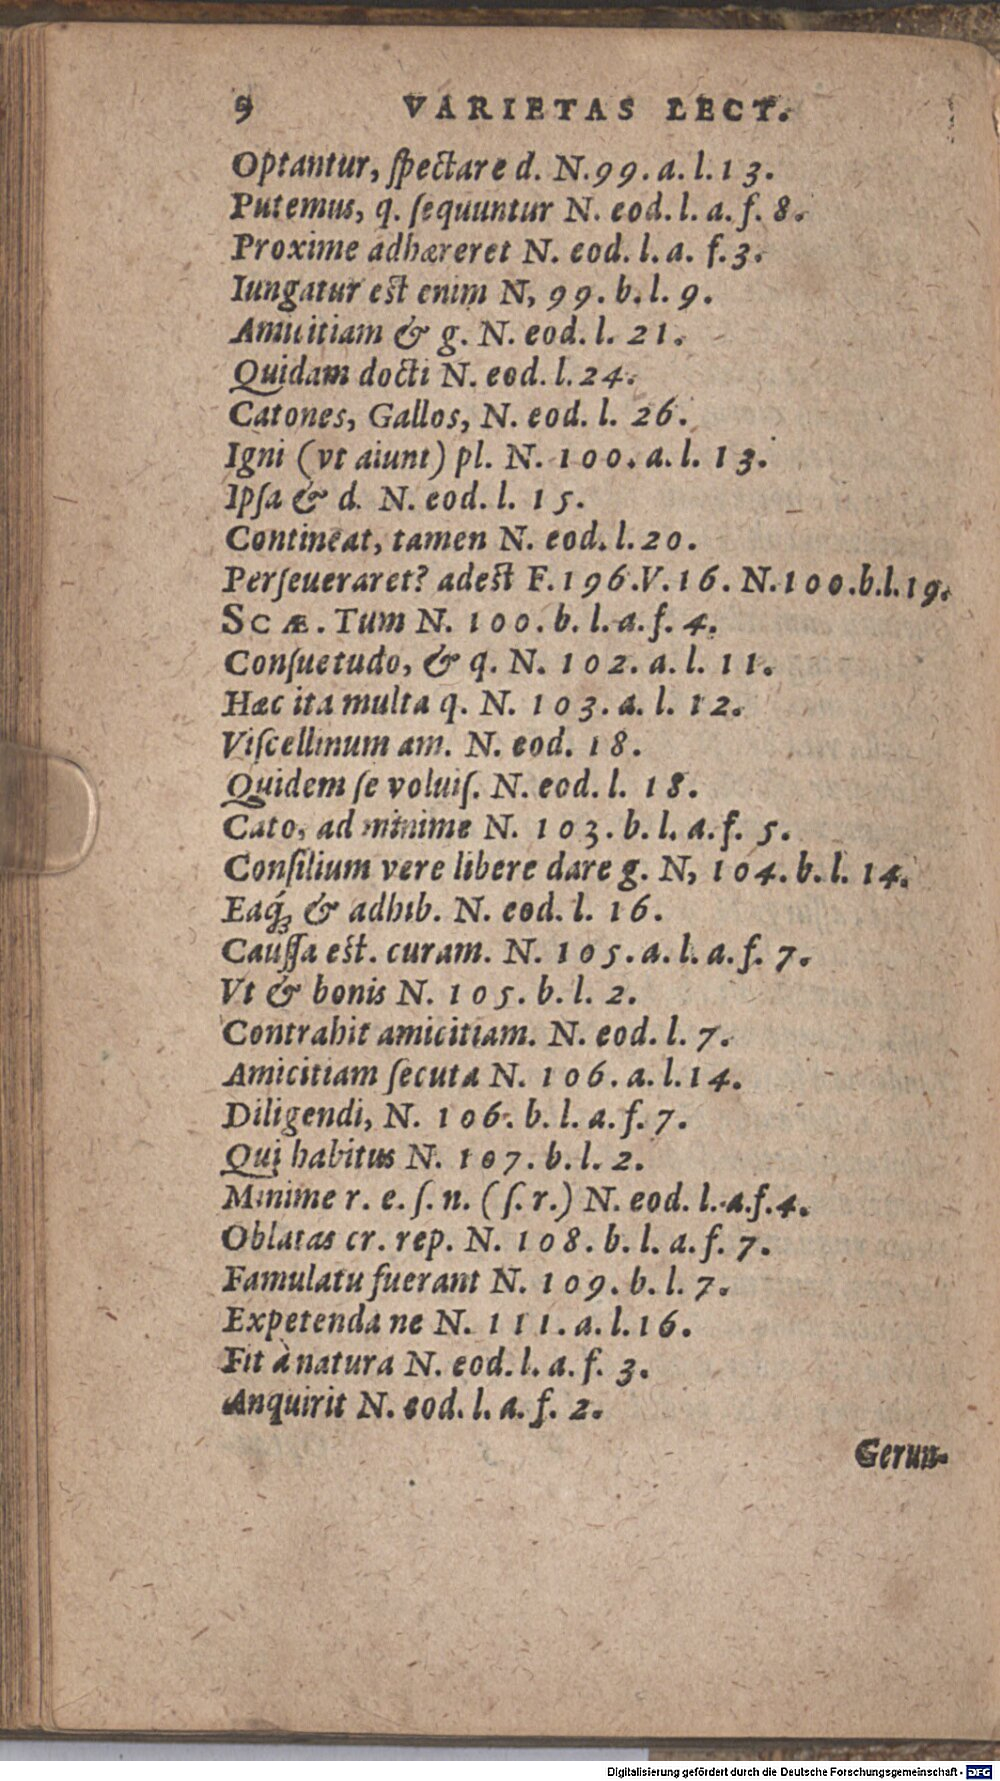 9 VARIETAS LECT.
Optantur, ſpectare d. N.99.a.l.13.
Putemus, q. ſequuntur N. eod.l.a.f. 8.
Proxime adhæreret N. eod.l.a. f.3.
Iungatur est enim N, 99.b.l.9.
Amicitiam & g. N. eod.l. 21.
Quidam docti N. eod.l.24.
Catones, Gallos, N. eod. l. 26.
Igni (vt aiunt) pl. N. 100.a.l. 13.
Ipſa & d. N. eod. l. 15.
Contineat, tamen N. eod.l.20.
Perſeueraret? adest F.196.V.16. N.100.b.l.19.
SCÆ. Tum N. 100.b.l.a.f. 4.
Conſuetudo, & q. N. 102.a.l. 11.
Hæc ita multa q. N. 103.a.l. 12.
Viſcellinum am. N. eod. 18.
Quidem ſe voluiſ. N. eod.l. 18.
Cato, ad minime N. 103.b.l.a.f. 5.
Conſilium vere libere dare g. N, 104.b.l. 14.
Eaq́ꝫ & adhib. N. eod.l. 16.
Cauſſa est. curam. N. 105.a.l.a.f. 7.
Vt & bonis N. 105.b.l. 2.
Contrahit amicitiam. N. eod.l.7.
Amicitiam ſecuta N. 106.a.l.14.
Diligendi, N. 106.b.l.a.f.7.
Qui habitus N. 107.b.l.2.
Minime r. e. ſ. n. (ſ. r.) N. eod.l.a.f.4.
Oblatas cr. rep. N. 108.b.l.a.f. 7.
Famulatu fuerant N. 109.b.l.7.
Expetenda ne N. 111.a.l.16.
Fit à natura N. eod.l.a.f. 3.
Anquirit N. eod.l.a.f. 2.
Gerun-
Digitalisierung gefördert durch die Deutsche Forschungsgemeinschaft - DFG